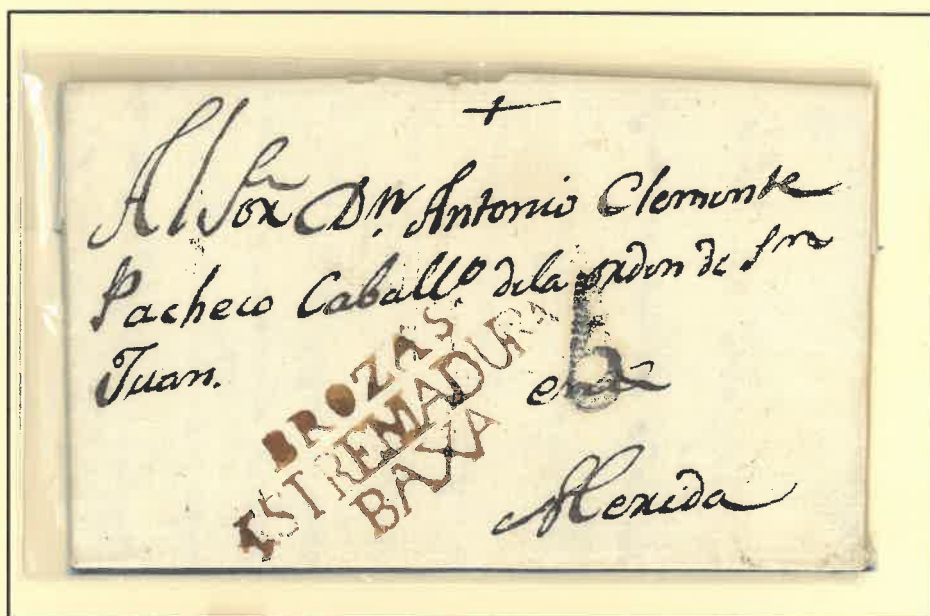 +
Al Sor Dn. Antonio Clemente
Pacheco Caballo. dela orden de Sn
Juan.
BROZAS
ESTREMADURA
BAXA
6
en
Merida